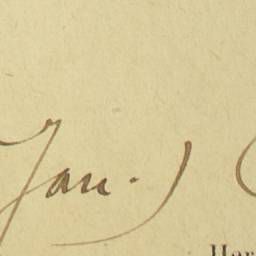 Jan.
Har